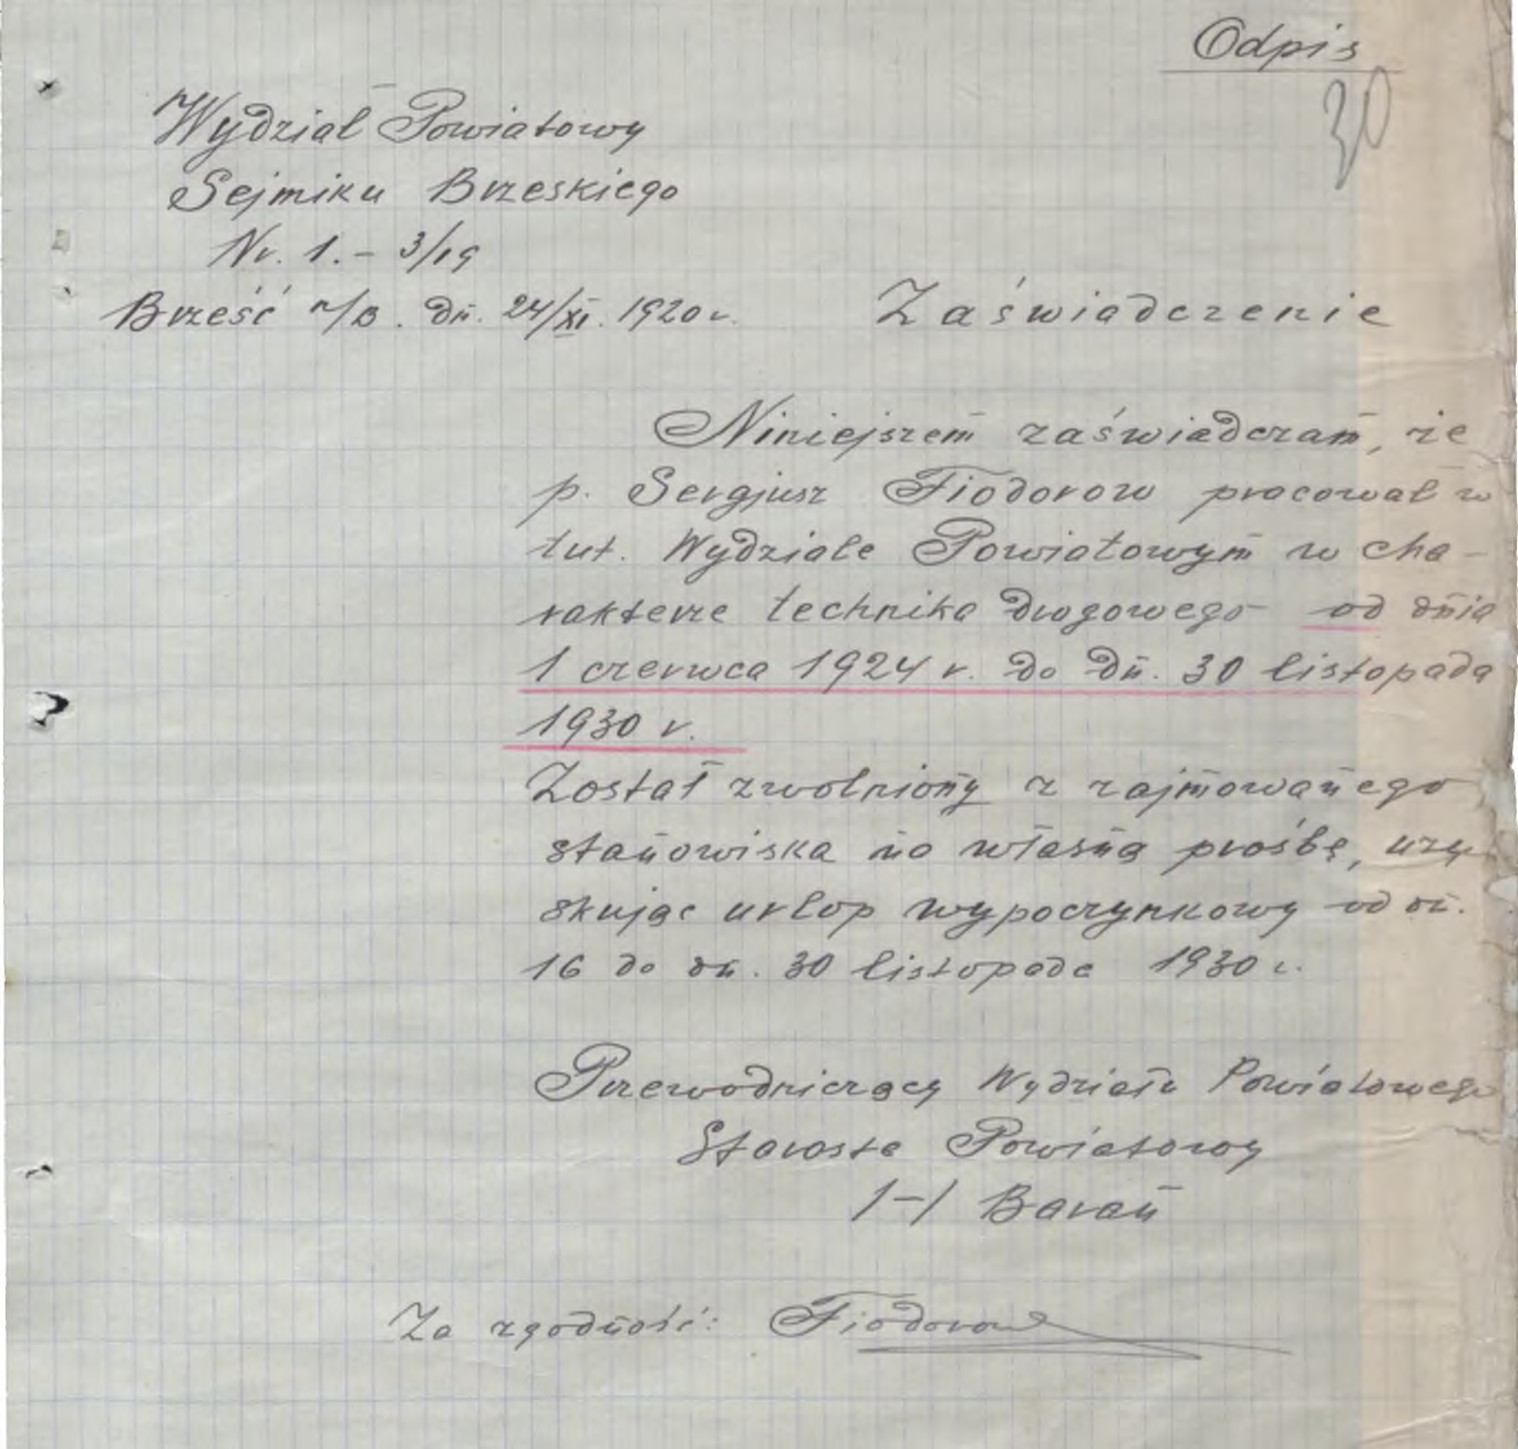 Odpis
30
Wydział Powiatowy
Sejmiku Brzeskiego
Nr. 1. – 3/19
Brześć n/B. dn. 24/XI. 1920 r.
Zaświadczenie
Niniejszem zaświadczam, że
p. Sergjusz Fiodorow pracował w
tut. Wydziale Powiatowym w cha-
rakterze technika drogowego od dnia
1 czerwca 1924 r. do dn. 30 listopada
1930 r.
Został zwolniony z zajmowanego
stanowiska na własną prośbę, uzy-
skując urlop wypoczynkowy od dn.
16 do dn. 30 listopada 1930 r.
Przewodniczący Wydziału Powiatowego
Starosta Powiatowy
/–/ Baran
Za zgodność: Fiodorow